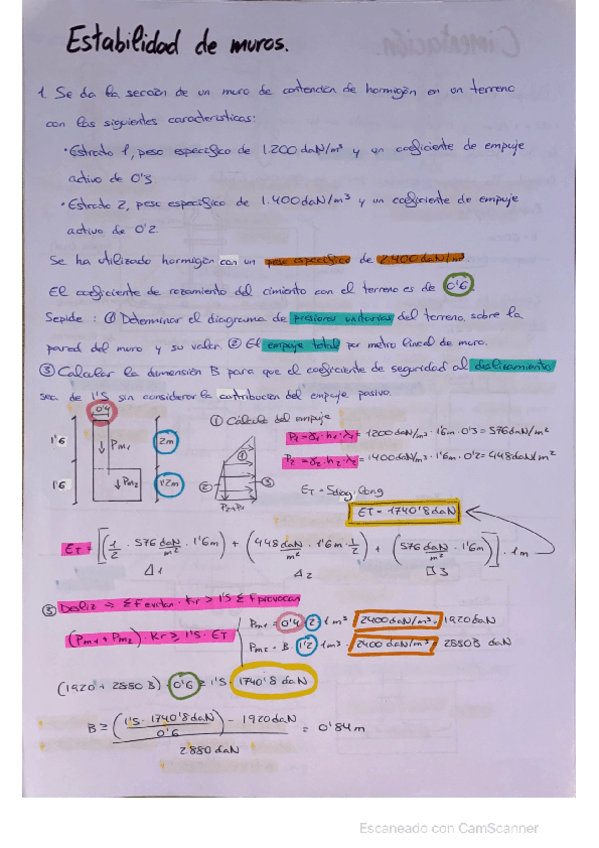 Estabilidad de muros.
1. Se da la sección de un muro de contención de hormigón en un terreno
con las siguientes características:
· Estrato 1, peso específico de 1.200 daN/m³ y un coeficiente de empuje
activo de 0'3
· Estrato 2, peso específico de 1.400 daN/m³ y un coeficiente de empuje
activo de 0'2.
Se ha utilizado hormigón con un peso específico de 2400 daN/m³.
El coeficiente de rozamiento del cimiento con el terreno es de 0'6
Se pide: ① Determinar el diagrama de presiones unitarias del terreno sobre la
pared del muro y su valor. ② El empuje total por metro lineal de muro.
③ Calcular la dimensión B para que el coeficiente de seguridad al deslizamiento
sea de 1'5 sin considerar la contribución del empuje pasivo.
0'4
1'6
Pm1
2m
1'6
Pm2
1'2m
① ② ③
P2+P1
① Cálculo del empuje
P1 = γ1·h1·λ1 = 1200 daN/m³ · 1'6m · 0'3 = 576 daN/m²
P2 = γ2·h2·λ2 = 1400 daN/m³ · 1'6m · 0'2 = 448 daN/m²
ET = Sdiag · long
ET = 1740'8 daN
ET = [(1/2 · 576 daN/m² · 1'6m) + (448 daN/m² · 1'6m · 1/2) + (576 daN/m² · 1'6m)] · 1m
Δ1 Δ2 □3
③ Desliz → ΣF evitan · Kr ≥ 1'5 ΣF provocan
(Pm1 + Pm2) · Kr ≥ 1'5 · ET
Pm1 = 0'4 · 2 · 1m³ · 2400 daN/m³ = 1920 daN
Pm2 = B · 1'2 · 1m³ · 2400 daN/m³ = 2880B daN
(1920 + 2880 B) · 0'6 ≥ 1'5 · 1740'8 daN
B ≥ ((1'5 · 1740'8 daN) / 0'6 - 1920 daN) / 2880 daN = 0'84 m
Escaneado con CamScanner